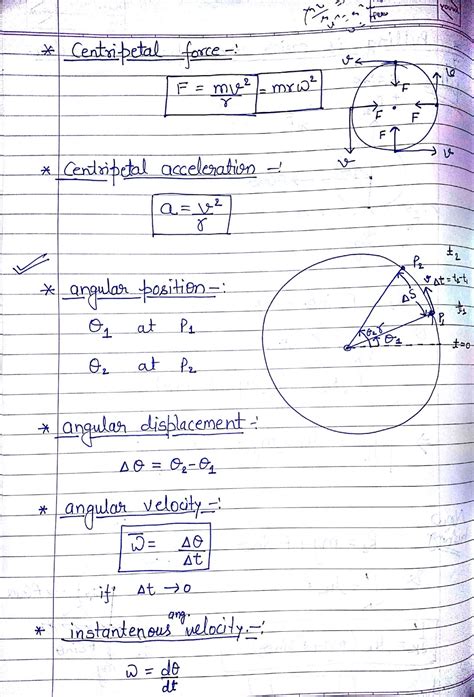 * Centripetal force -:
F = mv²/r = mrω²
v
v
F
F
F
F
v
v
* Centripetal acceleration -:
a = v²/r
* angular position -:
θ₁ at P₁
θ₂ at P₂
t₂
P₂
v Δt = t₂-t₁
ΔS
t₁
P₁
θ₂ r
θ₁
t=0
* angular displacement -:
Δθ = θ₂-θ₁
* angular velocity -:
ω̅ = Δθ/Δt
if Δt → 0
* instantenous ang. velocity -:
ω = dθ/dt